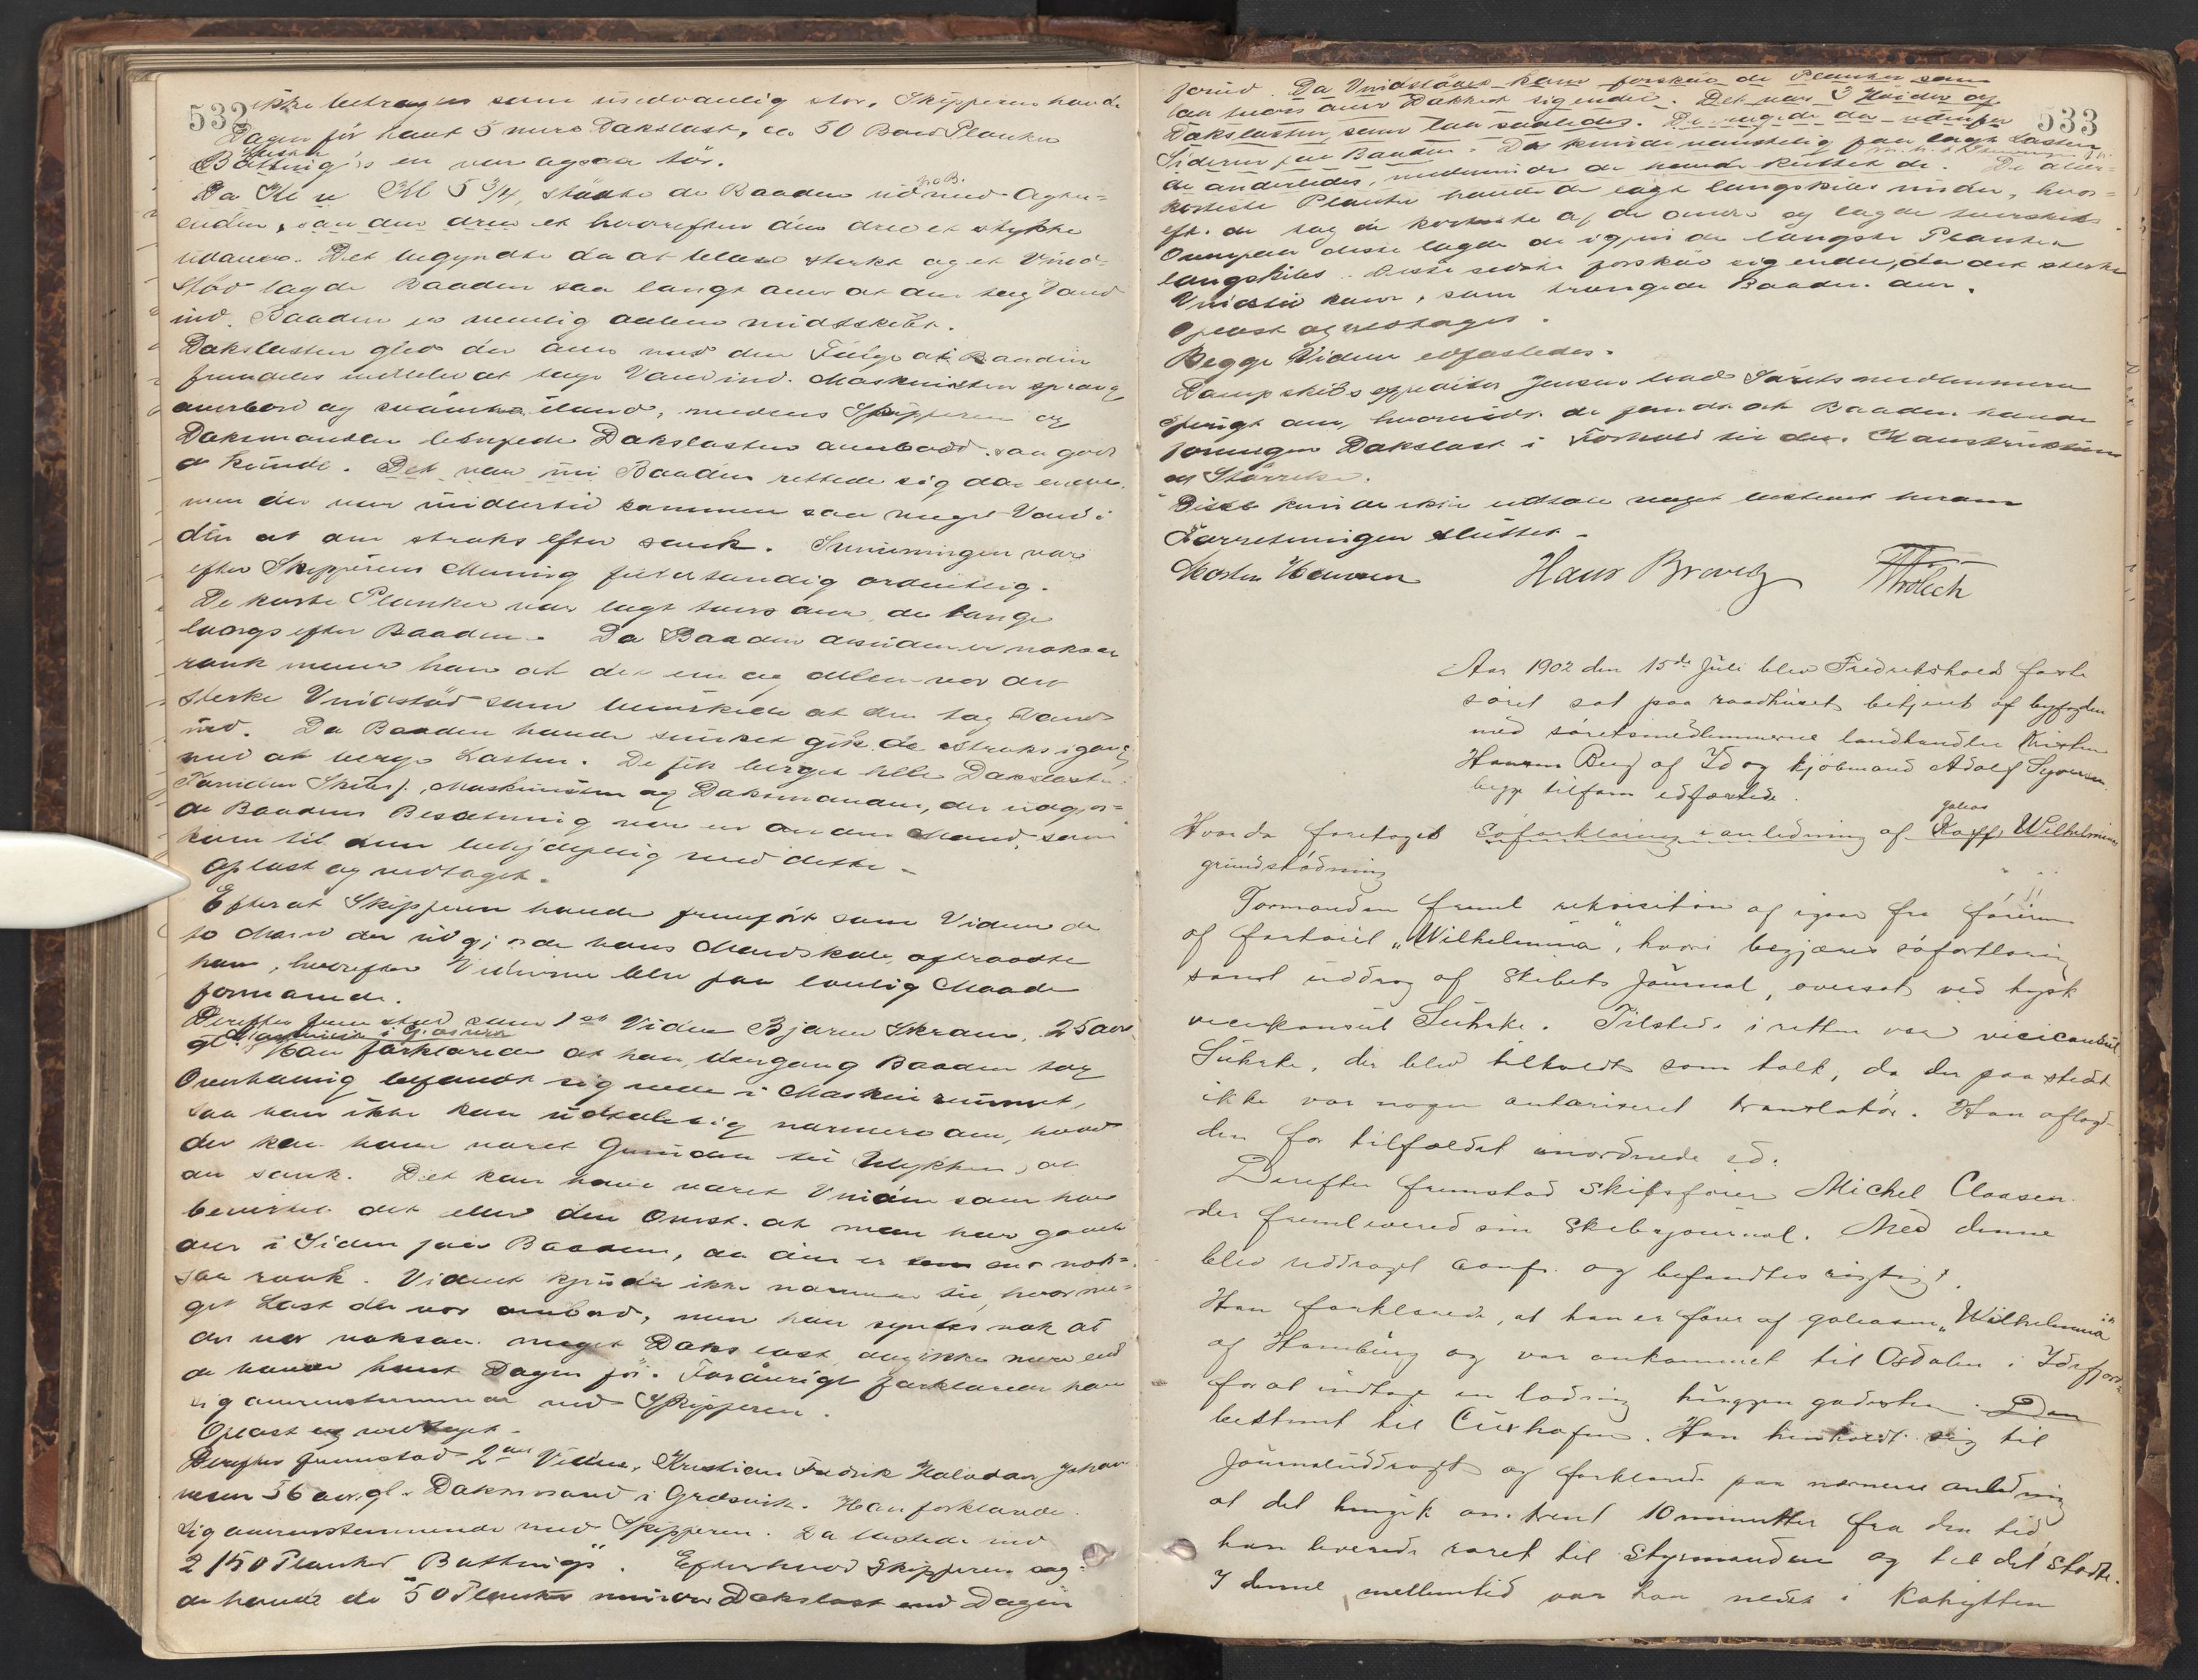 532
ikke betragtes som usedvanlig stor. Skipperen havde
Dagen før havt 5 mere Dakslast, ca 50 Bord Planker
Battnig's en var ogsaa tør.
Da Kl u Kl 5 3/4, stødte de Baaden ud med Agter=
enden, hvorefter den drev et stykke
udover. Det begyndte da at blæse sterkt og et Vind=
stød lagde Baaden saa langt over at den tog Vand
ind. Baaden er nemlig aaben midtskibs.
Dakslasten gled da over med den Følge at Baaden
fremdeles vedblev at tage Vand ind. Maskinisten sprang
overbord og svømte iland, medens Skipperen og
Daksmanden lempede Dakslasten overbord saa godt
de kunde. Det var nu Baaden rettede sig da
men der var imidlertid kommen saa meget Vand i
den at den straks efter sank. Stuvningen var
efter Skipperens Mening fuldstændig ordentlig.
De korte Planker var lagt tvers over de lange
langs efter Baaden. Da Baaden desuden er noksaa
rank mener han at det ene og alene var det
sterke Vindstød som bevirkede at den tog Vand
ind. Da Baaden havde sunket gik de straks igang
med at berge Lasten. De fik berget hele Dakslasten.
Foruden Skibsf., Maskinisten og Daksmanden, der udgjor=
de Baadens Besætning var en anden Mand, som
kom til dem behjelpelig med dette.
Oplæst og vedtaget.
Efterat Skipperen havde fremført som Vidner de
to Mænd der udgjorde hans Mandskab, aftraadte
han, hvorefter Vidnerne blev paa lovlig Maade
formanede.
Derefter fremstod som 1ste Vidne Bjarne Skram, 25 aar
gl. Maskinist i Græsvik
Han forklarede at han, dengang Baaden tog
Overhaling befandt sig nede i Maskinrummet,
saa han ikke kan udtale sig nærmere om, hvad
der kan have været Grunden til Ulykken, at
den sank. Det kan have været Vinden som har
bevirket det eller den Omst. at man har gaaet
over i Siden paa Baaden, da den er nok=
saa rank. Vidnet kjender ikke nærmere til, hvor me=
get Last der var ombord, men han syntes nok at
der var noksaa meget Dakslast, dog ikke mere end
de havde havt Dagen før. Forøvrigt forklarede han
sig overensstemmende med Skipperen.
Oplæst og vedtaget.
Derefter fremstod 2det Vidne, Kristian Fredrik Halvdan Johan=
nesen 56 aar gl. Daksmand i Græsvik. Han forklarede
sig overensstemmende med Skipperen. De lastede ind
2150 Planker Battnigs. Efter hvad Skipperen sag=
de havde de 50 Planker mindre Dakslast end Dagen
533
forud. Da Vindstødet kom forskjød de Planker som
laa tvers over Dækket sig endel. Det var 3 Høider af
Dakslasten, som laa saaledes. De ragede da udenfor
Siderne paa Baaden. De kunde vanskelig faa lagt Lasten
de anderledes, medmindre de havde kuttet de. De aller=
korteste Planker havde de lagt langskibs under, hvor=
eft. de tog de korteste af de andre og lagde tverskibs.
Ovenpaa disse lagde de igjen de længste Planker
langskibs. Disse sidste forskjød sig endel, da det sterke
Vindstød kom, som trængede Baaden over.
Oplæst og vedtaget.
Begge Vidner edfæstedes.
Dampskibsexpeditør Jensen bad Søretsmedlemmerne
spurgt om, hvorvidt de fandt at Baaden havde
formegen Dakslast i Forhold til dens Konstruktion
og Størrelse.
Disse kunde ikke udtale noget bestemt herom
Forretningen sluttet.
Morten Hansen Hans Brovig Frølich
Aar 1902 den 15de Juli blev Fredrikshald faste
søret sat paa raadhuset, betjent af byfogden
med søretsmedlemmerne landhandler Kristen
Hansen Berg af Id og kjøbmand Adolf Syversen
begge tilforn edfæstede.
Hvorda foretoges Søforklaring i anledning af galeas Wilhelmines
grundstødning
Formanden freml. rekvisition af igaar fra føreren
af fartøiet "Wilhelmina", hvori begjæres søforklaring
samt uddrag af skibets Journal, oversat ved tysk
vicekonsul Lührke. Tilstede i retten var vicekonsul
Lührke, der blev tilkaldt som tolk, da der paa stedet
ikke var nogen autoriseret translatør. Han aflagde
den for tilfældet anordnede ed.
Derefter fremstod skibsfører Michel Claasen
der fremleverede sin skibsjournal. Med denne
blev uddraget conf. og befandtes rigtigt.
Han forklarede, at han er fører af galeasen "Wilhelmina"
af Hamburg og var ankommet til Osdalen i Idefjorden
for at indtage en ladning huggen gadesten
bestemt til Cuxhafen. Han henholdt sig til
Journaluddraget og forklarede paa nærmere anledning
at det hengik omtrent 10 minutter fra den tid,
han leverede roret til Styrmanden og til det stødte.
I denne mellemtid var han nede i Kahytten